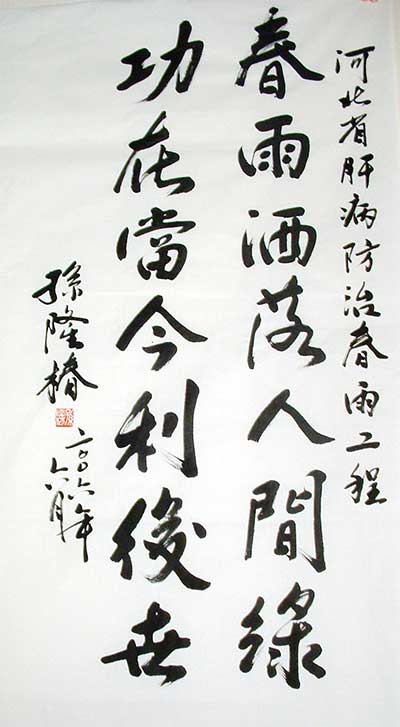 河北省肝病防治春雨工程
春雨洒落人間綠
功在當今利後世
孫隆椿
二〇〇六年
六月